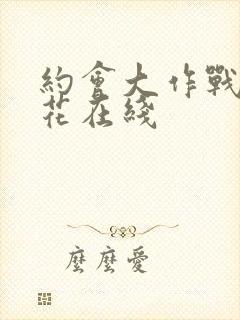 約會大作戰
花在綫
麼麼愛